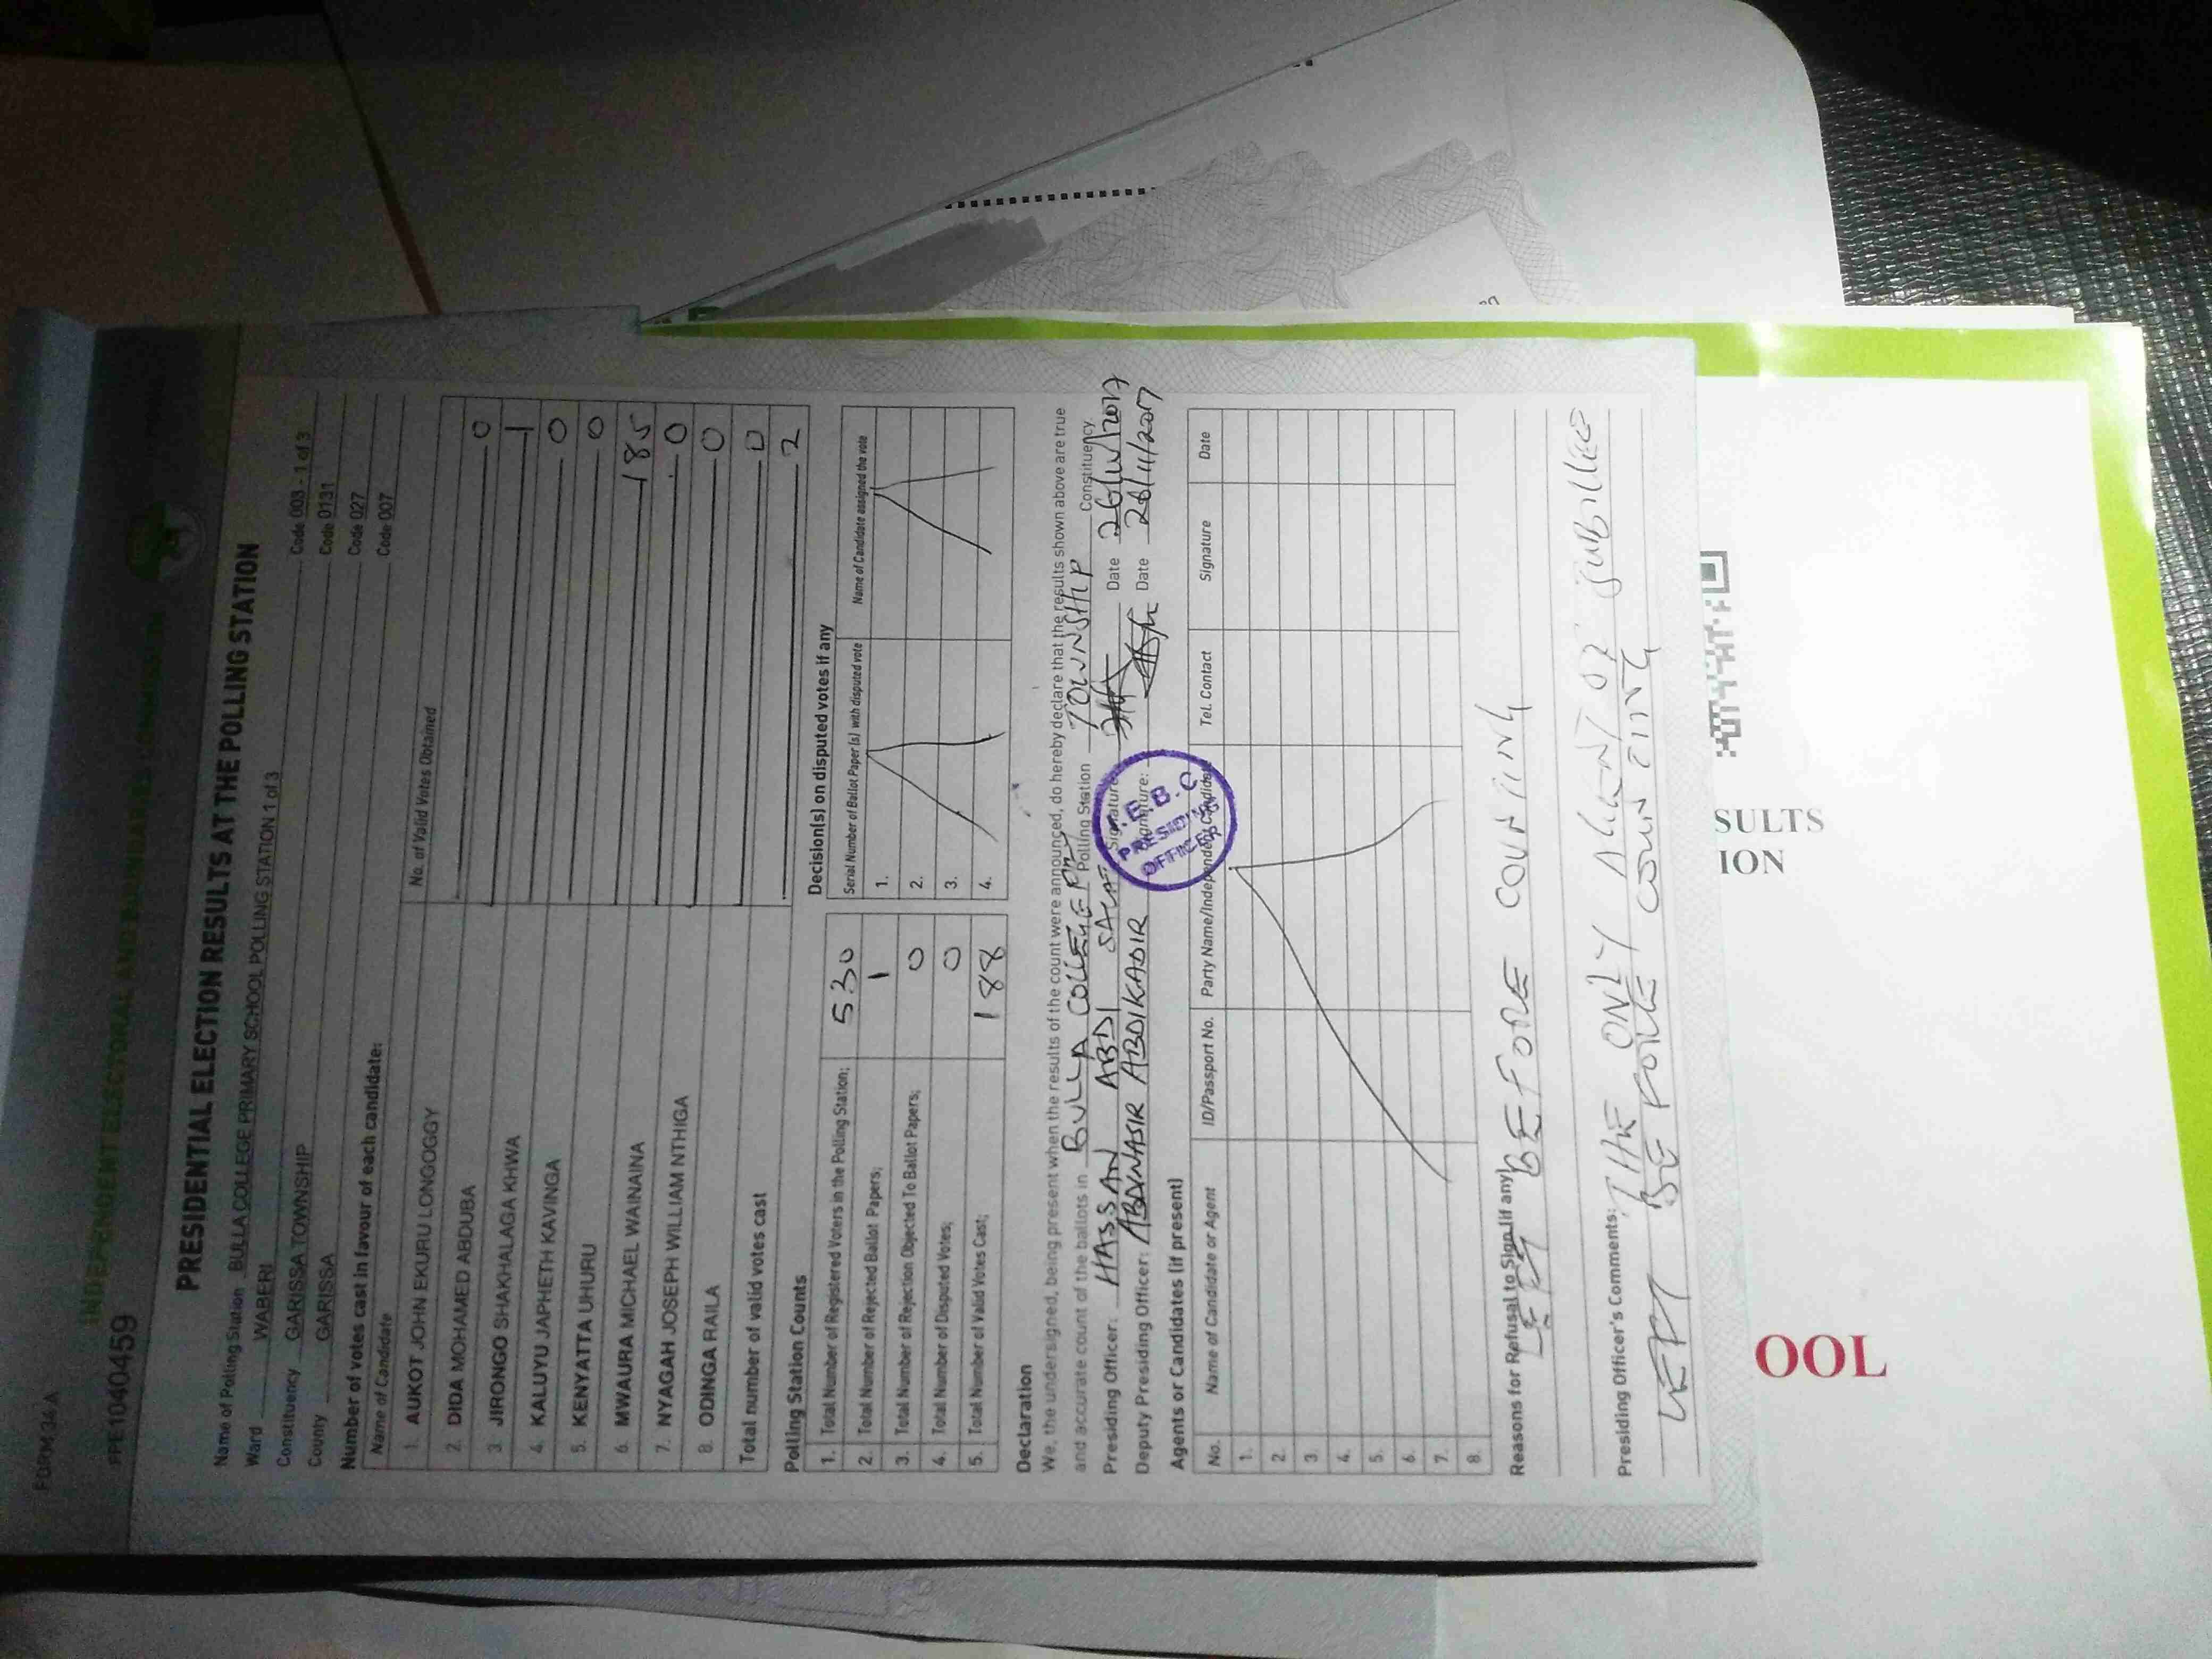 FORM 34A
INDEPENDENT ELECTORAL AND BOUNDARIES COMMISSION
PPE1040459
PRESIDENTIAL ELECTION RESULTS AT THE POLLING STATION
Name of Polling Station BULLA COLLEGE PRIMARY SCHOOL POLLING STATION 1 of 3 Code 003 - 1 of 3
Ward WABERI Code 0131
Constituency GARISSA TOWNSHIP Code 027
County GARISSA Code 007
Number of votes cast in favour of each candidate:
Name of Candidate No. of Valid Votes Obtained
1. AUKOT JOHN EKURU LONGOGGY 0
2. DIDA MOHAMED ABDUBA 1
3. JIRONGO SHAKHALAGA KHWA 0
4. KALUYU JAPHETH KAVINGA 0
5. KENYATTA UHURU 185
6. MWAURA MICHAEL WAINAINA 0
7. NYAGAH JOSEPH WILLIAM NTHIGA 0
8. ODINGA RAILA 0
Total number of valid votes cast 2
Polling Station Counts
1. Total Number of Registered Voters in the Polling Station; 530
2. Total Number of Rejected Ballot Papers; 1
3. Total Number of Rejection Objected To Ballot Papers; 0
4. Total Number of Disputed Votes; 0
5. Total Number of Valid Votes Cast; 188
Decision(s) on disputed votes if any
Serial Number of Ballot Paper (s) with disputed vote Name of Candidate assigned the vote
1.
2.
3.
4.
Declaration
We, the undersigned, being present when the results of the count were announced, do hereby declare that the results shown above are true
and accurate count of the ballots in BULLA COLLEGE PRY Polling Station TOWNSHIP Constituency.
Presiding Officer: HASSAN ABDI SALAT Signature: Date 26/10/2017
Deputy Presiding Officer: ABDINASIR ABDIKADIR Signature: Date 26/11/2017
I.E.B.C
PRESIDING
OFFICER
Agents or Candidates (if present)
No. Name of Candidate or Agent ID/Passport No. Party Name/Independent Candidate Tel. Contact Signature Date
1.
2.
3.
4.
5.
6.
7.
8.
Reasons for Refusal to Sign (if any)
LEFT BEFORE COUNTING
Presiding Officer's Comments: THE ONLY AGENT OF JUBILEE
LEFT BEFORE COUNTING
SULTS
ION
OOL